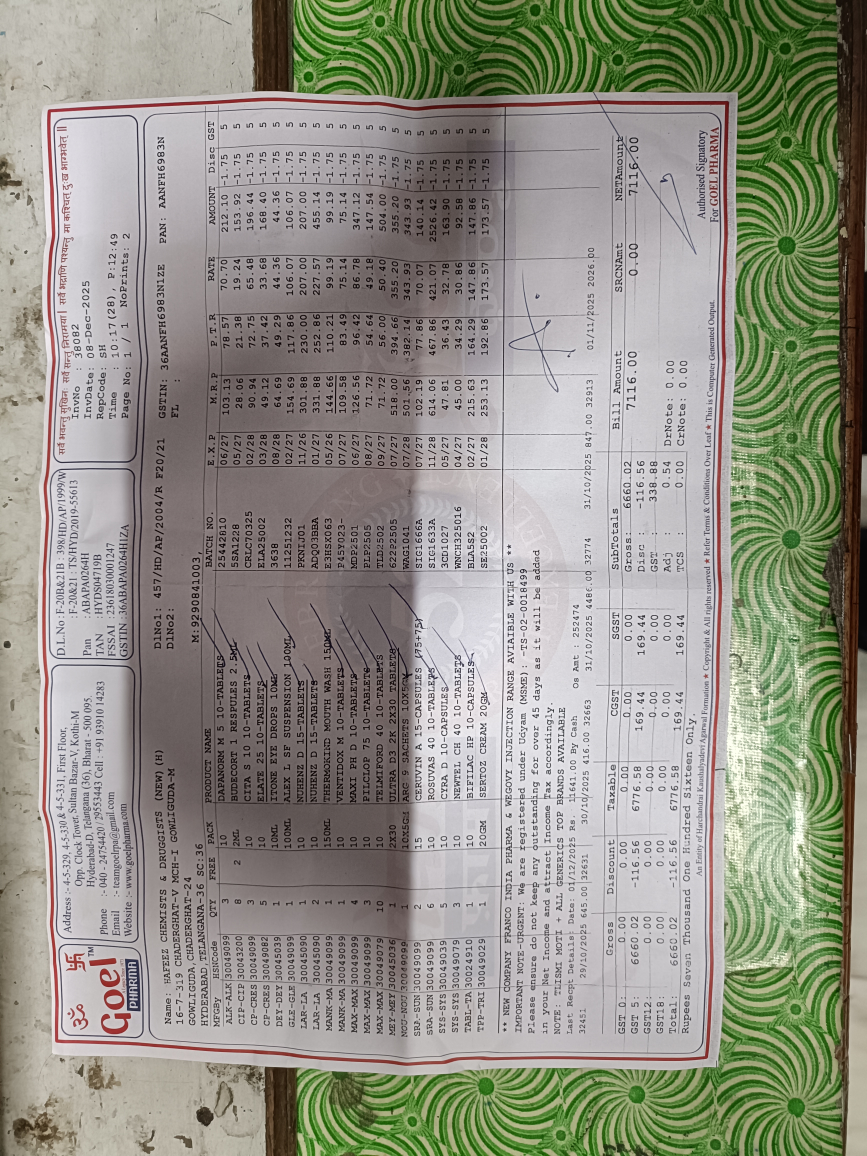 ॐ 卐
Goel™
PHARMA
Address :- 4-5-329, 4-5-330 & 4-5-331, First Floor,
Opp. Clock Tower, Sultan Bazar-V, Kothi-M
Hyderabad-D, Telangana (36), Bharat - 500 095.
Phone :- 040 - 24754420 / 29553443 Cell : +91 93910 14283
Email :- teamgoelrpa@gmail.com
Website :- www.goelpharma.com
D.L.No : F-20B&21B : 398/HD/AP/1999/W
: F-20&21 : TS/HYD/2019-55613
Pan : ABAPA0264H
TAN : HYDS04719B
FSSAI : 23618030001247
GSTIN : 36ABAPA0264H1ZA
सर्वे भवन्तु सुखिनः सर्वे सन्तु निरामयाः। सर्वे भद्राणि पश्यन्तु मा कश्चित् दुःख भाग्भवेत् ॥
InvNo : 38082
InvDate: 08-Dec-2025
RepCode: SH
Time : 10:17(28) P:12:49
Page No: 1 / 1 NoPrints: 2
Name: HAFEEZ CHEMISTS & DRUGGISTS (NEW)(H)
16-7-319 CHADERGHAT-V MCH-I GOWLIGUDA-M
GOWLIGUDA,CHADERGHAT-24
HYDERABAD,TELANGANA-36 SC:36
DlNo1: 457/HD/AP/2004/R F20/21
DlNo2:
M:9290841003,
GSTIN: 36AANFH6983N1ZE PAN: AANFH6983N
FL :
MFGBy HSNCode QTY FREE PACK PRODUCT NAME BATCH NO. E.X.P M.R.P P.T.R RATE AMOUNT Disc GST
ALK-ALK 30049099 3 10 DAPANORM M 5 10-TABLETS 25442810 06/27 103.13 78.57 70.70 212.10 -1.75 5
CIP-CIP 30043200 8 2 2ML BUDECORT 1 RESPULES 2.5ML 5SA1228 05/27 28.06 21.38 19.24 153.92 -1.75 5
CP-CRES 30049099 3 10 CITA S 10 10-TABLETS CRLC70325 02/28 90.94 72.75 65.48 196.44 -1.75 5
CP-CRES 30049082 5 10 ELATE 25 10-TABLETS ELA25002 03/28 49.12 37.42 33.68 168.40 -1.75 5
DEY-DEY 30045039 1 10ML ITONE EYE DROPS 10ML 3638 08/28 64.69 49.29 44.36 44.36 -1.75 5
GLE-GLE 30049099 1 100ML ALEX L SF SUSPENSION 100ML 11251232 02/27 154.69 117.86 106.07 106.07 -1.75 5
LAR-LA 30045090 1 10 NUHENZ D 15-TABLETS PKN1J01 11/26 301.88 230.00 207.00 207.00 -1.75 5
LAR-LA 30045090 2 10 NUHENZ D 15-TABLETS ADQ03BBA 01/27 331.88 252.86 227.57 455.14 -1.75 5
MANK-MA 30049099 1 150ML THERMOKIND MOUTH WASH 150ML E3HSX063 05/26 144.66 110.21 99.19 99.19 -1.75 5
MANK-MA 30049099 1 10 VENTIDOX M 10-TABLETS P45Y023- 07/27 109.58 83.49 75.14 75.14 -1.75 5
MAX-MAX 30049099 4 10 MAXI PH D 10-TABLETS MDP2501 06/27 126.56 96.42 86.78 347.12 -1.75 5
MAX-MAX 30049099 3 10 PILCLOP 75 10-TABLETS PLP2505 08/27 71.72 54.64 49.18 147.54 -1.75 5
MAX-MAX 30049079 10 10 TELMIFORD 40 10-TABLETS TLD2502 09/27 71.72 56.00 50.40 504.00 -1.75 5
MEY-MEY 30045036 1 2X30 ULTRA D3.2K 2X30 TABLETS 622P2505 07/27 518.00 394.66 355.20 355.20 -1.75 5
NOU-NOU 30049099 1 10X5GM ARG 9 SACHETS 10X5GM WAG1041 07/28 501.56 382.14 343.93 343.93 -1.75 5
SRA-SUN 30049099 2 15 CERUVIN A 15-CAPSULES (75+75) SIC1666A 07/27 102.19 77.86 70.07 140.14 -1.75 5
SRA-SUN 30049099 6 10 ROSUVAS 40 10-TABLETS SIG1633A 11/28 614.06 467.86 421.07 2526.42 -1.75 5
SYS-SYS 30049039 5 10 CYRA D 10-CAPSULES 3CD1027 05/27 47.81 36.43 32.78 163.90 -1.75 5
SYS-SYS 30049079 3 10 NEWTEL CH 40 10-TABLETS WNCH325016 04/27 45.00 34.29 30.86 92.58 -1.75 5
TABL-TA 30024910 1 10 BIFILAC HP 10-CAPSULES BLA5S2 02/27 215.63 164.29 147.86 147.86 -1.75 5
TPP-TRI 30049029 1 20GM SERTOZ CREAM 20GM SE25002 01/28 253.13 192.86 173.57 173.57 -1.75 5
** NEW COMPANY FRANCO INDIA PHARMA & WEGOVY INJECTION RANGE AVIAIBLE WITH US **
IMPORTANT NOTE-URGENT: We are registered under Udyam (MSME): -TS-02-0018499
Please ensure do not keep any outstanding for over 45 days as it will be added
in your Net Income and attract Income Tax accordingly.
NOTE : TLISMI MOTI + ALL GENERICS TOP BRANDS AVAILABLE
Last Recpt Details: Date: 01/12/2025 Rs. 11641.00 By Cash Os Amt : 252474
32451 29/10/2025 645.00 32631 30/10/2025 416.00 32663 31/10/2025 4486.00 32774 31/10/2025 847.00 32913 01/11/2025 2026.00
Gross Discount Taxable CGST SGST SubTotals Bill Amount SRCNAmt NETAmount
GST 0: 0.00 0.00 0.00 0.00 0.00 Gross: 6660.02 7116.00 0.00 7116.00
GST 5: 6660.02 -116.56 6776.58 169.44 169.44 Disc : -116.56
GST12: 0.00 0.00 0.00 0.00 0.00 GST : 338.88
GST18: 0.00 0.00 0.00 0.00 0.00 Adj : 0.54 DrNote: 0.00
Total: 6660.02 -116.56 6776.58 169.44 169.44 TCS : 0.00 CrNote: 0.00
Rupees Seven Thousand One Hundred Sixteen Only.
Authorised Signatory
For GOEL PHARMA
An Entity of Harichandra Kaushalyadevi Agarwal Formation ★ Copyright & All rights reserved ★ Refer Terms & Conditions Over Leaf ★ This is Computer Generated Output.